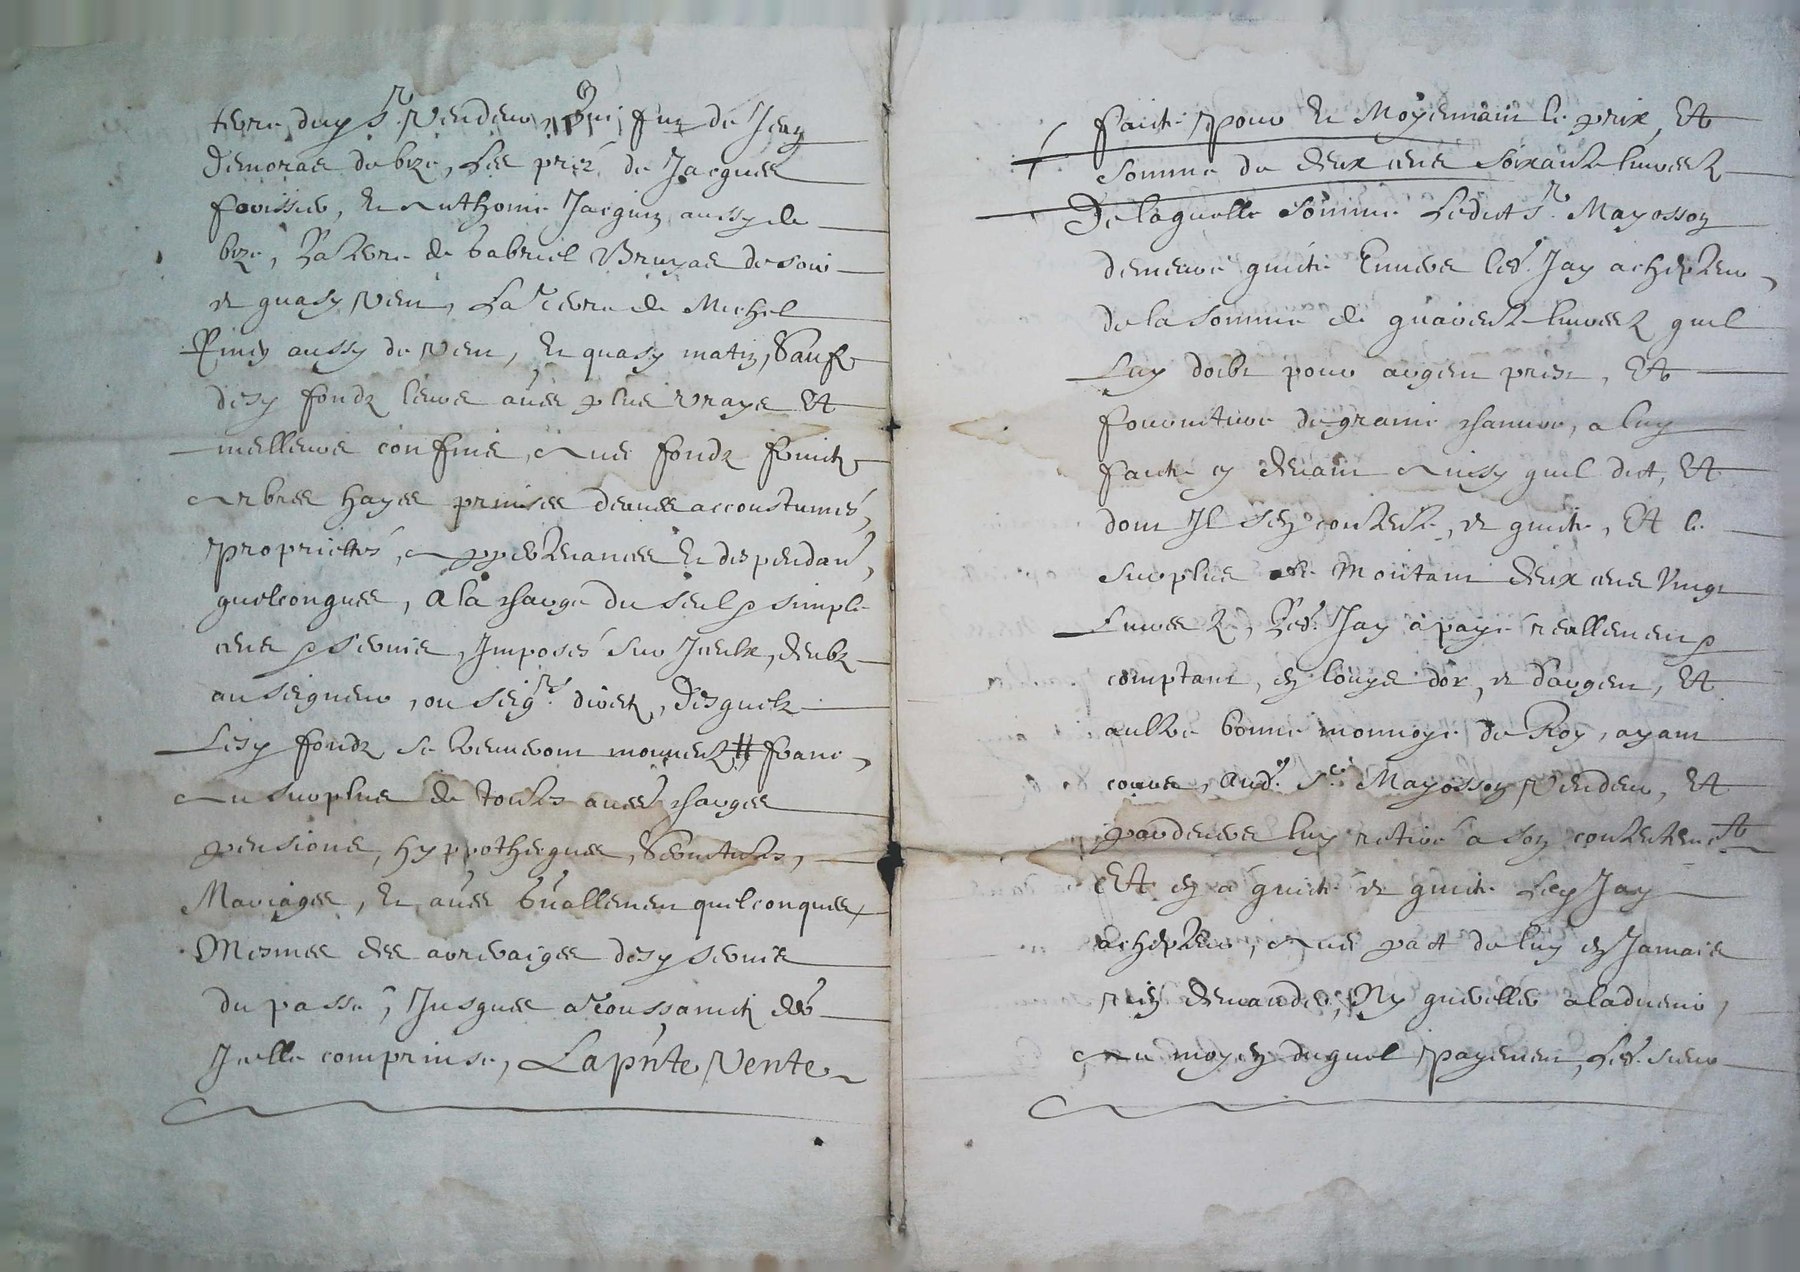 terre dudt Sr. vendeur, qui fut de Jean
Demoras de bize, Les prez de Jacques
fovissier, Et Anthoine Jacquin aussy de
bize, La terre de Gabriel Bruyas de soir
et quasy vent, La terre de Michel
aussy de vent, Et quasy matin, Sauf
desd fondz leurs aués plus vrays Et
melleurs confins, Aues fondz fruictz
Arbres hayes prinses deues accoustumés,
Proprietés, Appertenances Et despendan,
quelconques, A la charge du seul & simple
cens & servis, Imposés sur Jceulx, deubz
au seigneur, ou seigrs. directz, Desquelz
Lesd fondz se treuveront mouventz # franc,
Au surplus de toutes aues charges
pensions, hyppotheques, Servitutes,
Mariages, Et aues Gnallement quelconques
Mesmes des arreraiges desd servis
du passé, Jusques a Toussainctz der
Jcelle comprinse, La pnte Vente
faicte Pour Et Moyennant le prix, Et
somme de deux cens soixante livres
De laquelle somme Ledict Sr. Mayosson
demeure quitte Envers led. Jay achepteur
de la somme de quarente livres quil
Lay doibt pour argent presté, Et
fourniture de graine chanvre, a luy
faicte cy devant Ainsy quil dict, Et
dont Jl sen contente, et quitte, Et le
surplus Montant deux cens vingt
Livres, Led. Jay a payé reallement &
comptant, en louys dor, et dargent, Et
aultre bonne monnoye de Roy, ayant
cours, Aud. Sr. Mayosson Vendeur, Et
par devers luy retiré a son contentement
Et en a quitté et quitte Led Jay
achepteur, Aues pact de luy en Jamais
rien demander, Ny quereller a ladvenir,
Au moyen duquel Payement, Led. sieur